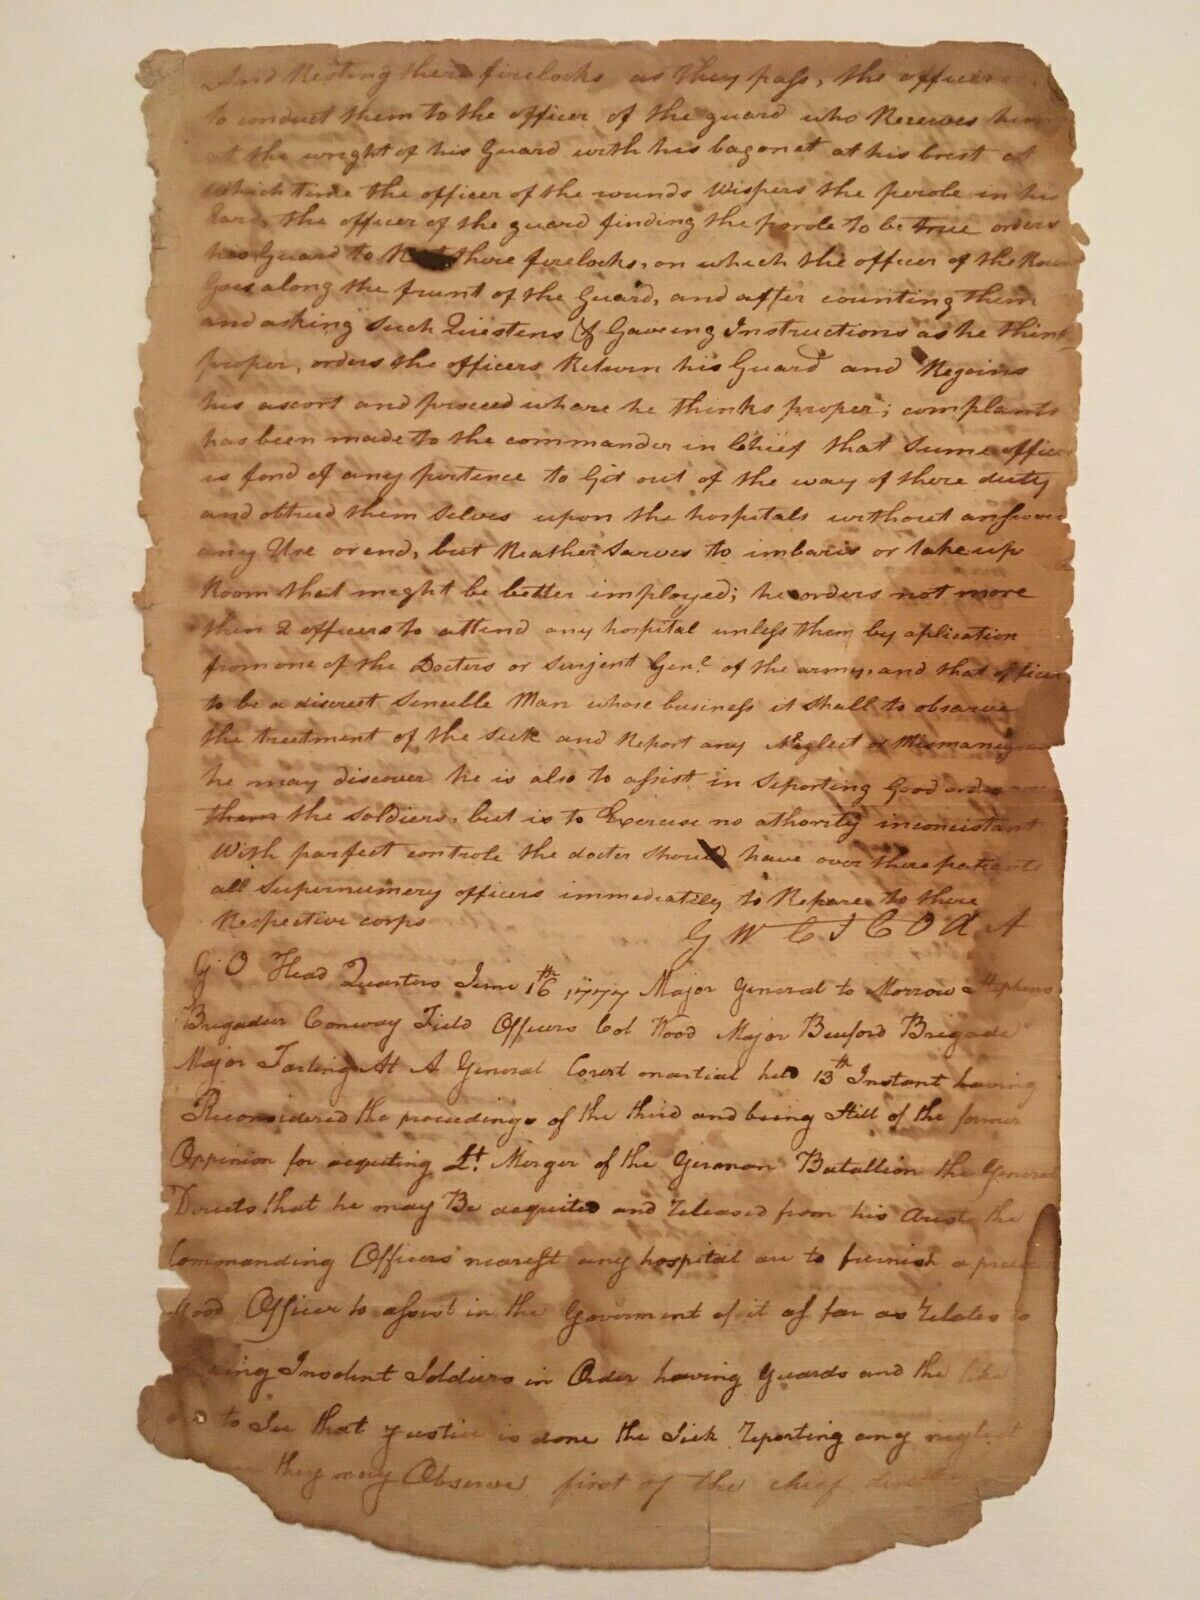 And Resting there firelocks as they pass, the officer
to conduct them to the officer of the guard who Receives him
at the wright of his Guard with his bagonet at his brest at
which time the officer of the rounds Wispers the perole in his
Eare, the officer of the guard finding the parole to be true orders
his Guard to Rest there firelocks, on which the officer of the
Goes along the frunt of the Guard, and after counting them
and asking Such Quistens & Gaveing Instructions as he think
proper, orders the officers Return his Guard and Regoins
his ascort and proceed whare he thinks proper; complants
has been made to the commander in Chief that Sume office
is fond of any portence to Git out of the way of there duty
and obtrud them Selves upon the hospitals without
any Use or end, but Reather Sarves to imbaris or take up
Room that might be better imployed; he orders not more
then 2 officers to attend any hospital unless them by aplication
from one of the Docters or Surjent Genl. of the army, and that officer
to be a discreet Sensible Man whose business it Shall to obsarve
the treetment of the Sick and Report any Neglect or
he may discover he is also to assist in Seporting Good order
them the Soldiers, but is to Exercise no athority inconcistant
With parfect controle the docter Should have over there patients
all Supernumery officers immedeatily to Repare to there
Respective corps
G W C I C O U A
G O Head Quarters June 16th 1777 Major General to Morrow Stephens
Brigadier Conway Field Officers Col Wood Major Beuford Brigade
Major Tarling At A General Court martial held 13th Instant having
Reconsidered the proceedings of the third and being Still of the former
Oppinion for acquiting Lt. Merger of the German Batallion the General
Directs that he may Be acquited and released from his Arest the
Commanding Officers nearest any hospital are to furnish a
Good Officer to assist in the Goverment of it as far as relates to
Insolent Soldiers in Order having Guards and the like
to See that Justice is done the Sick reporting any neglect
they may Observe first of the chief